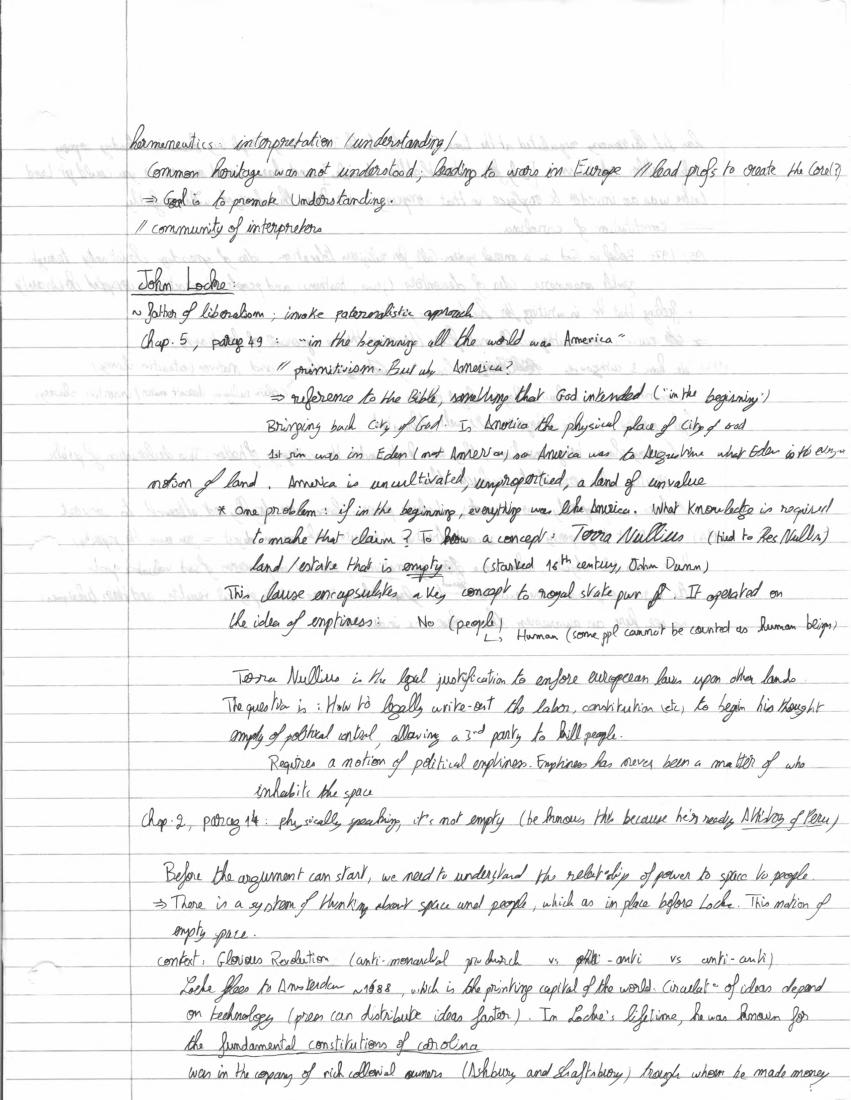 hermeneutics: interpretation /understanding/
Common heritage was not understood; leading to wars in Europe // lead profs to create the Core(?)
⇒ Goal is to promote Understanding.
// community of interpreters
John Locke:
~ father of liberalism; invoke paternalistic approach
Chap. 5, parag 49: "in the beginning all the world was America"
// primitivism. But why America?
⇒ reference to the Bible, something that God intended ("in the beginning")
Bringing back City of God. Is America the physical place of City of God
1st sin was in Eden (not America) so America was to Augustine what Eden is to the
notion of land. America is uncultivated, unpropertied, a land of unvalue
* one problem: if in the beginning, everything was like America. What knowledge is required
to make that claim? To a concept: Terra Nullius (tied to Res Nullius)
land /estate that is empty. (started 16th century, John Dunn)
This clause encapsulates a key concept to royal state pwr. It operated on
the idea of emptiness: No (people)
↳ Human (some ppl cannot be counted as human beigns)
Terra Nullius is the legal justification to enfore europeean laws upon other lands
The question is: How to legally write-out the labor, constitution (etc) to begin his thought
empty of political control, allowing a 3rd party to kill people.
Requires a notion of political emptiness. Emptiness has never been a matter of who
inhabits the space
Chap. 2, parag 14: physically speaking, it's not empty (he knows this because he's ready of Peru)
Before the argument can start, we need to understand the relatship of power to space to people.
⇒ There is a system of thinking about space and people, which as in place before Locke. This notion of
empty space.
context: Glorious Revolution (anti-monarchal vs -anti vs anti-anti)
Locke flees to Amsterdam ~1688, which is the printing capital of the world. Circulat° of ideas depend
on technology (press can distribute ideas faster). In Locke's lifetime, he was known for
the fundamental constitutions of carolina
was in the copany of rich collonial owners (Ashbury and Shaftsbury) trough whom he made money